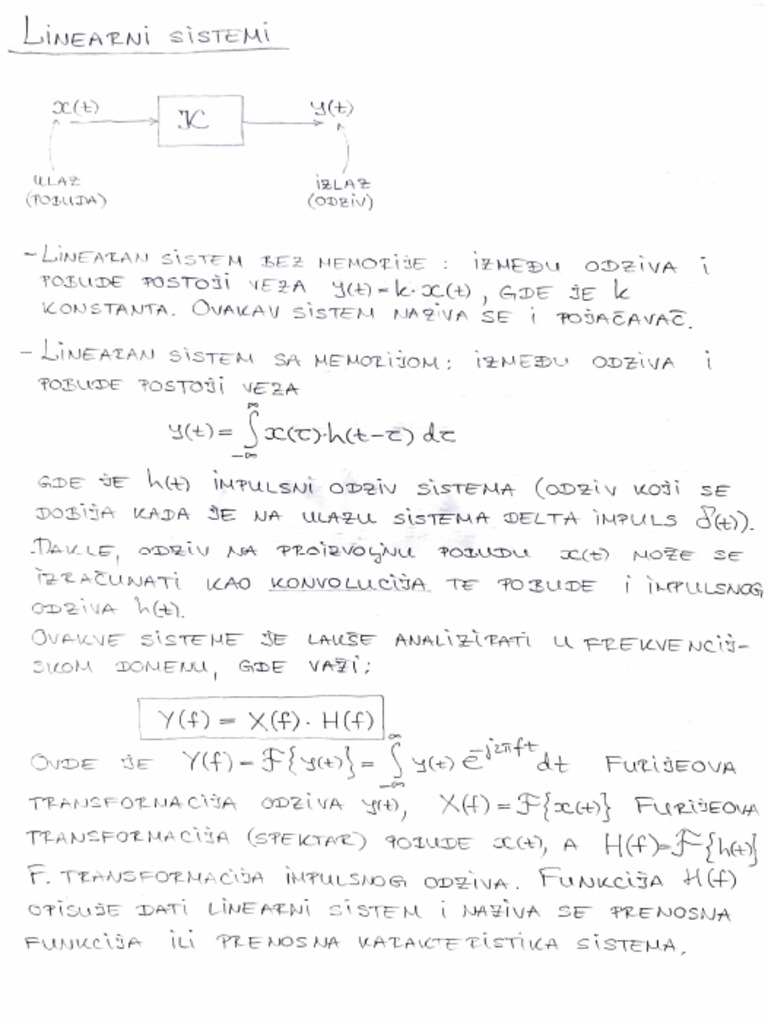 LINEARNI SISTEMI
x(t) ℋ y(t)
ULAZ IZLAZ
(POBUDA) (ODZIV)
- LINEARAN SISTEM BEZ MEMORIJE: IZMEĐU ODZIVA I
POBUDE POSTOJI VEZA y(t)=k·x(t), GDE JE k
KONSTANTA. OVAKAV SISTEM NAZIVA SE I POJAČAVAČ.
- LINEARAN SISTEM SA MEMORIJOM: IZMEĐU ODZIVA I
POBUDE POSTOJI VEZA
y(t)=∫_{-∞}^{∞} x(τ)·h(t-τ) dτ
GDE JE h(t) IMPULSNI ODZIV SISTEMA (ODZIV KOJI SE
DOBIJA KADA JE NA ULAZU SISTEMA DELTA IMPULS δ(t)).
DAKLE, ODZIV NA PROIZVOLJNU POBUDU x(t) MOŽE SE
IZRAČUNATI KAO KONVOLUCIJA TE POBUDE I IMPULSNOG
ODZIVA h(t).
OVAKVE SISTEME JE LAKŠE ANALIZIRATI U FREKVENCIJ-
SKOM DOMENU, GDE VAŽI:
Y(f) = X(f) · H(f)
OVDE JE Y(f) = ℱ{y(t)} = ∫_{-∞}^{∞} y(t) e^{-j2πft} dt FURIJEOVA
TRANSFORMACIJA ODZIVA y(t), X(f)=ℱ{x(t)} FURIJEOVA
TRANSFORMACIJA (SPEKTAR) POBUDE x(t), A H(f)=ℱ{h(t)}
F. TRANSFORMACIJA IMPULSNOG ODZIVA. FUNKCIJA H(f)
OPISUJE DATI LINEARNI SISTEM I NAZIVA SE PRENOSNA
FUNKCIJA ILI PRENOSNA KARAKTERISTIKA SISTEMA.